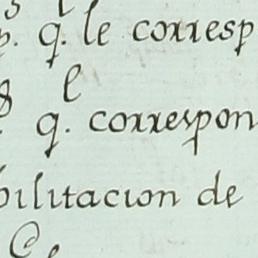 p. q. le corresp
q. correspon
bilitacion de